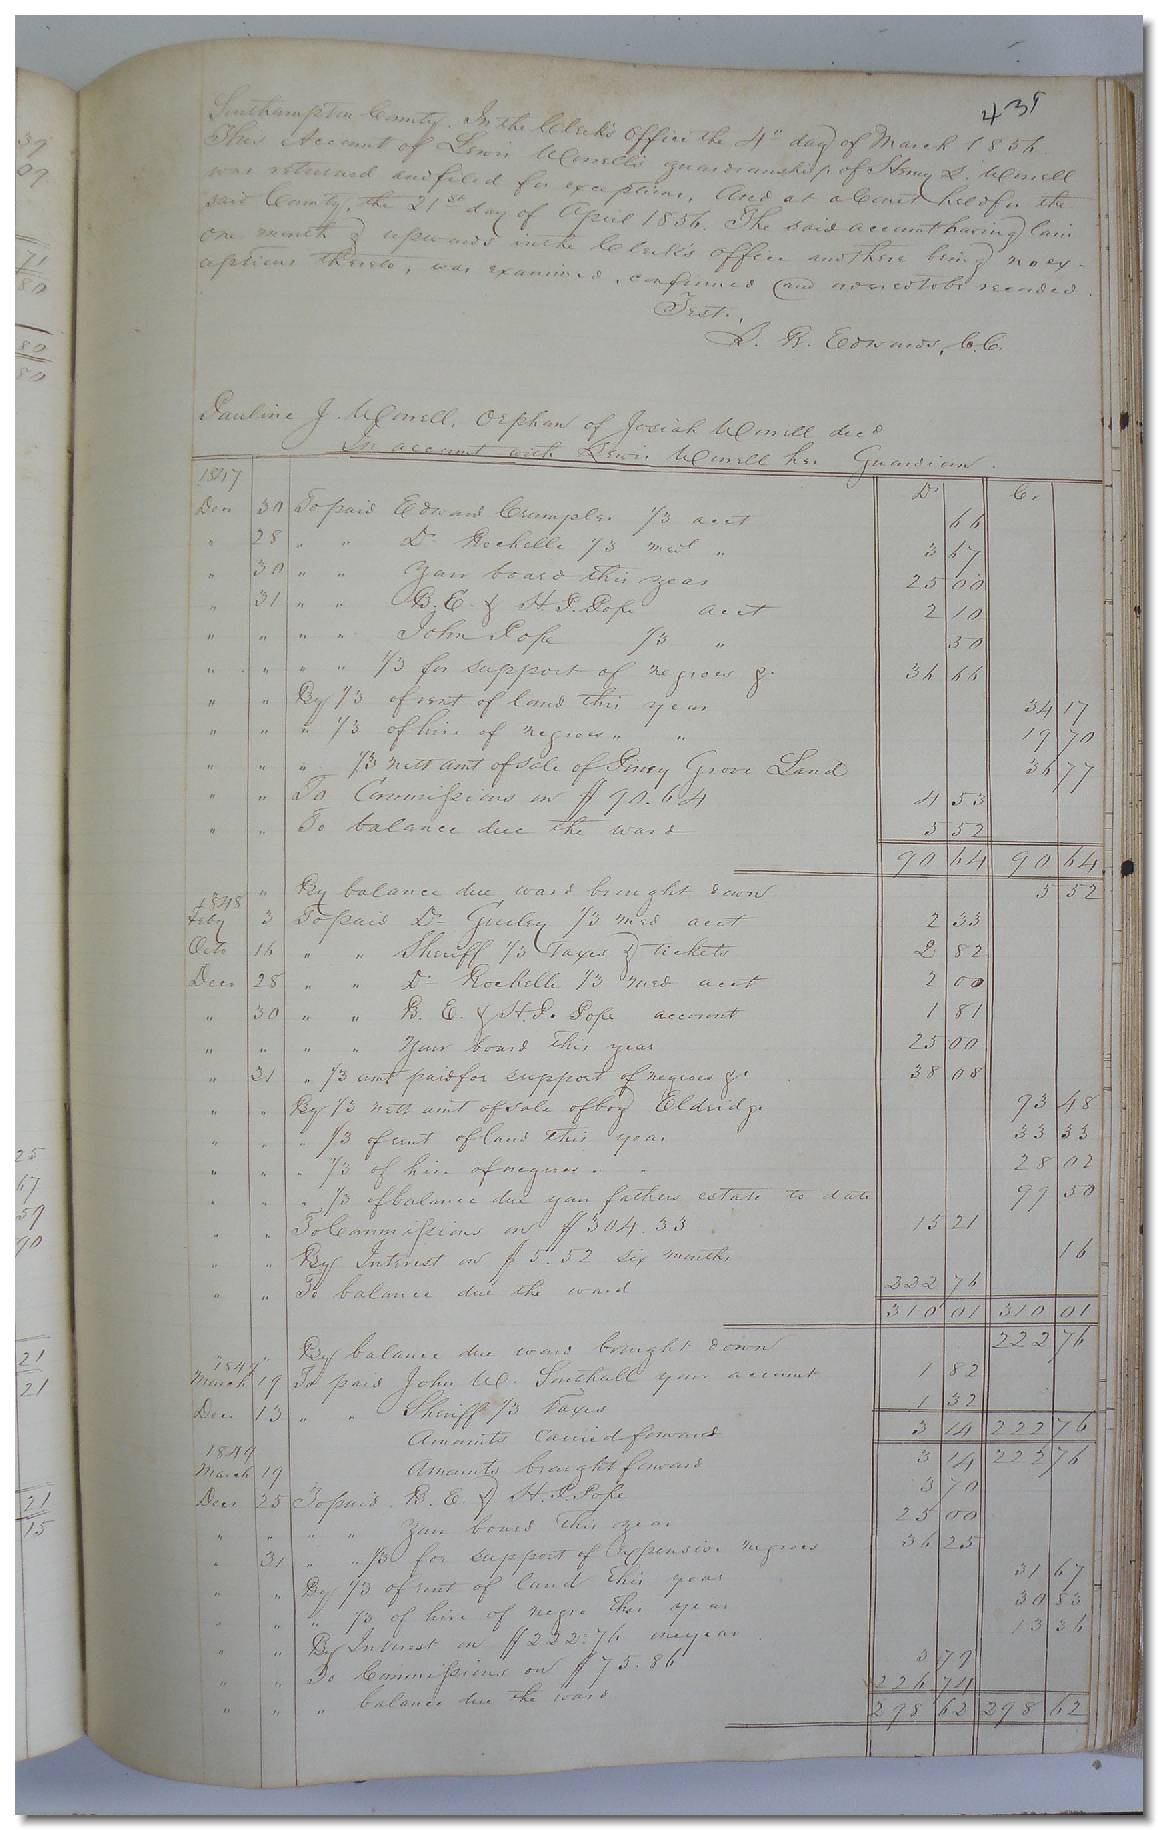 435
Southampton County. In the Clerk's Office the 4" day of March 1856
This Account of Lewis Worrell's guardianship of Henry L. Worrell
was returned and filed for exceptions, And at a Court held for the
said County, the 21st day of April 1856. The said account having lain
one month & upwards in the Clerk's office and there being no ex-
ceptions thereto, was examined, confirmed and ordered to be recorded.
Test.,
L. R. Edwards, C.C.
Pauline J. Worrell, Orphan of Josiah Worrell decd
In account with Lewis Worrell her Guardian.
1847 Dr Cr
Dec 30 To paid Edward Crumpler 1/3 acct 66
" 28 " " Dr Rochelle 1/3 med " 3 67
" 30 " " Your board this year 25 00
" 31 " " B. E. & H. P. Pope acct 2 10
" " " " John Pope 1/3 " 50
" " " " 1/3 for support of negroes &c 36 66
" " By 1/3 of rent of land this year 34 17
" " " 1/3 of hire of negroes " " 19 70
" " " 1/3 nett amt of sale of Piney Grove Land 36 77
" " To Commissions on $90.64 4 53
" " To balance due the ward 5 52
90 64 90 64
" By balance due ward brought down 5 52
1848
Feby 3 To paid Dr Gurley 1/3 med acct 2 33
Octo 16 " " Sheriff 1/3 Taxes & tickets 2 82
Dec 28 " " Dr Rochelle 1/3 med acct 2 00
" 30 " " B. E. & H. P. Pope account 1 81
" " " " Your board this year 25 00
" 31 " 1/3 amt paid for support of negroes &c 38 08
" " By 1/3 nett amt of sale of boy Eldridge 93 48
" " " 1/3 of rent of land this year 33 33
" " " 1/3 of hire of negroes " " 28 02
" " " 1/3 of balance due your fathers estate to date 99 50
" " To Commissions on $304.33 15 21
" " By Interest on $5.52 six months 16
" " To balance due the ward 222 76
310 01 310 01
By balance due ward brought down 222 76
1849
March 19 To paid John W. Southall your account 1 82
Dec 13 " " Sheriff 1/3 Taxes 1 32
Amounts carried forward 3 14 222 76
1849
March 19 Amounts brought forward 3 14 222 76
Dec 25 To paid B. E. & H. P. Pope 3 70
" " " " Your board this year 25 00
" 31 " " 1/3 for support of expensive negroes 36 25
" " By 1/3 of rent of land this year 31 67
" " " 1/3 of hire of negro this year 30 83
" " By Interest on $222.76 one year 13 36
" " To Commissions on $75.86 3 79
" " " balance due the ward 226 74
298 62 298 62